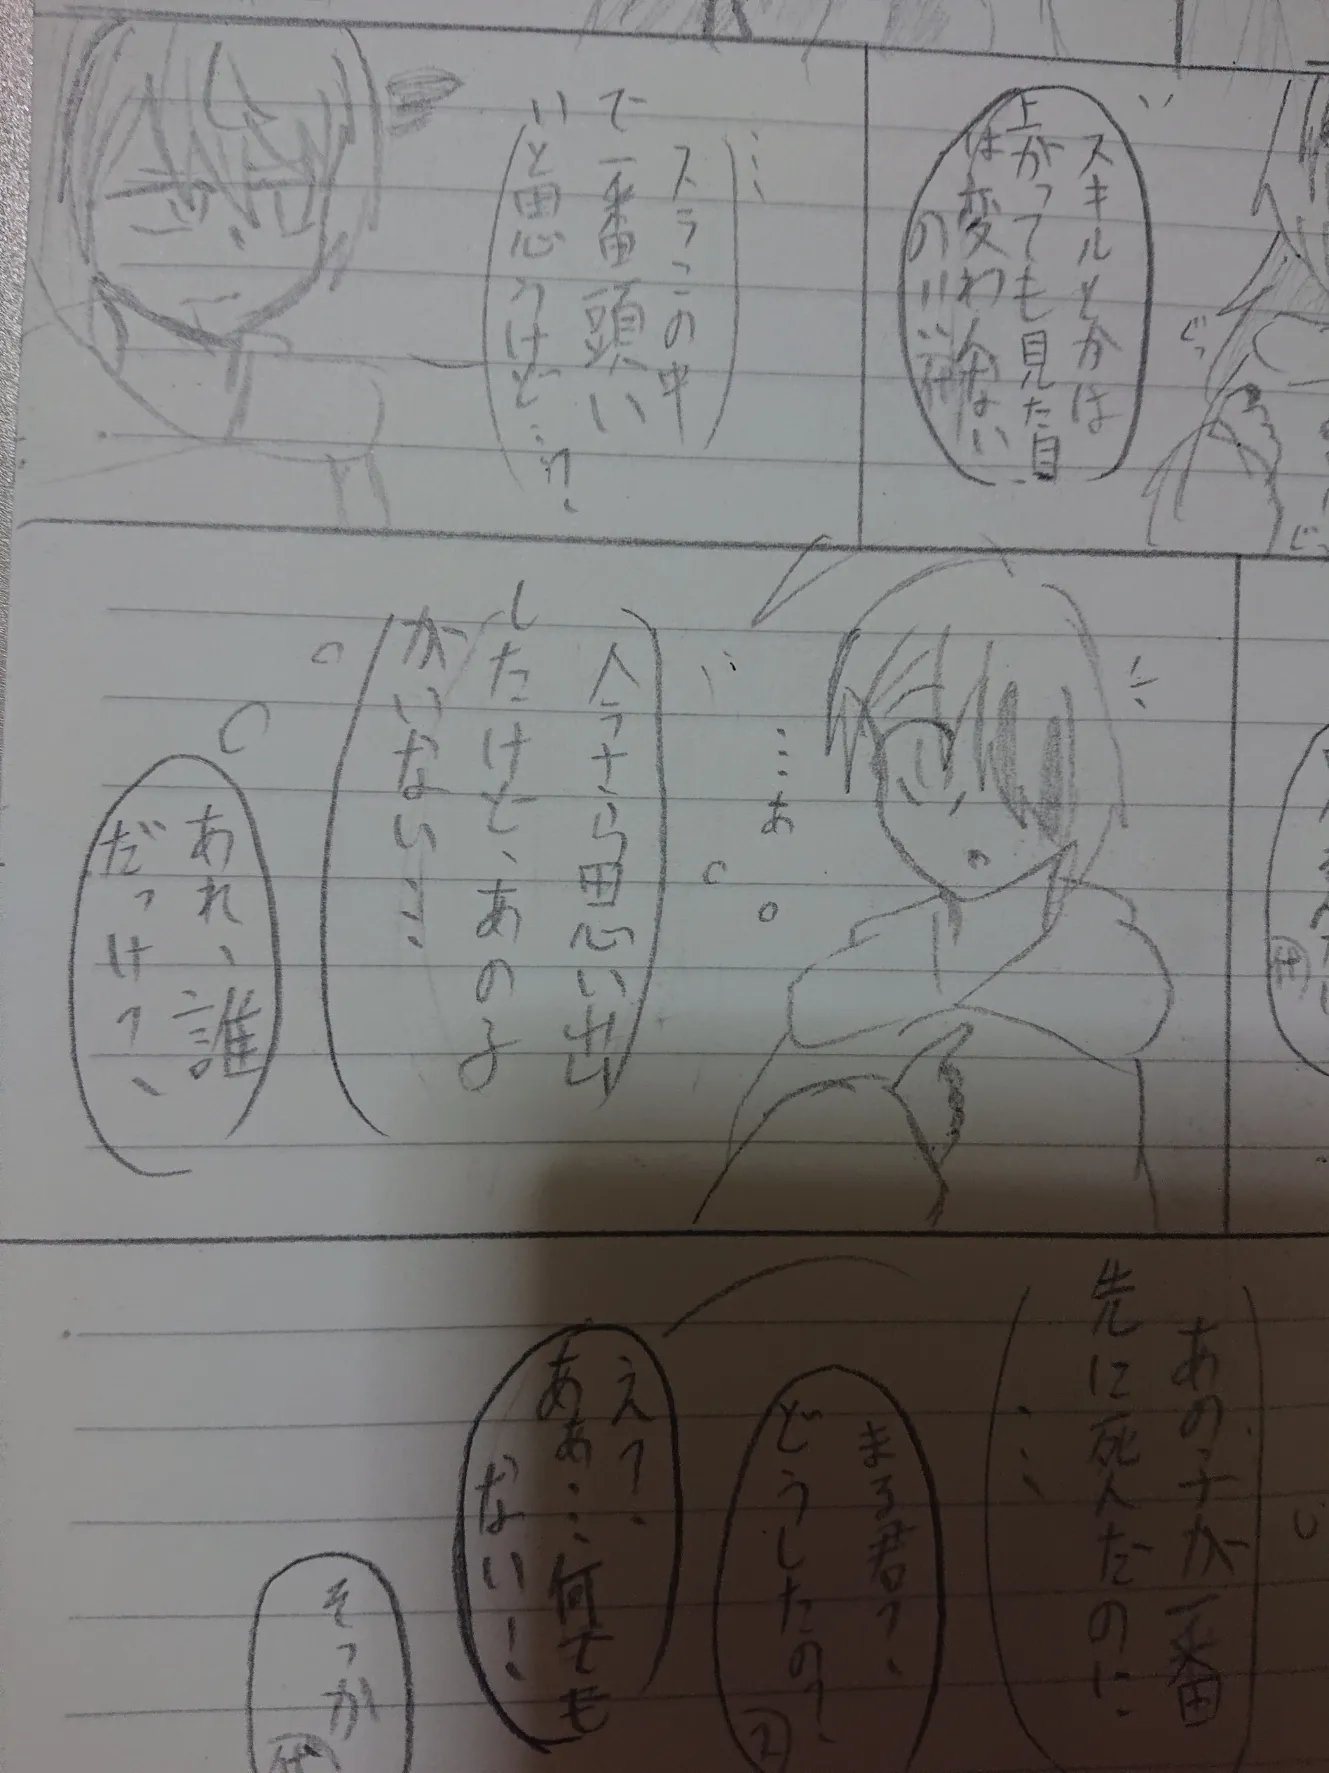 スキルとかは
上がっても見た目
は変わんない
の
ぐっ
…
スラこの中
で一番頭い
いと思うけど…?
…あ
今さら思い出
したけど、あの子
がいない…
あれ、誰
だっけ?、
あの子が一番
先に死んだのに
…
まろ君?、
どうしたの?
ス
え?、
あぁ…、何でも
ない!
そっか